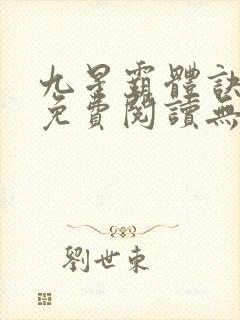 九星霸體訣
免費閱讀無
劉世東